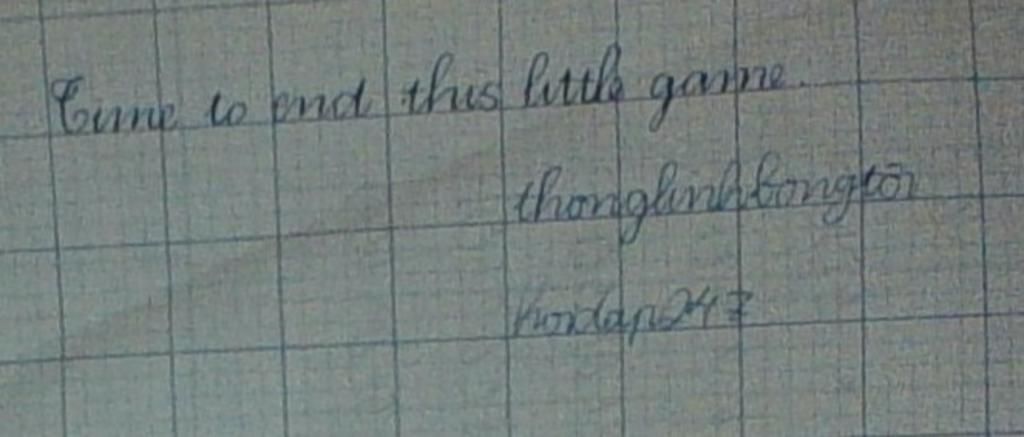 Time to end this little game.
thonglinhbongtoi
hoidap247